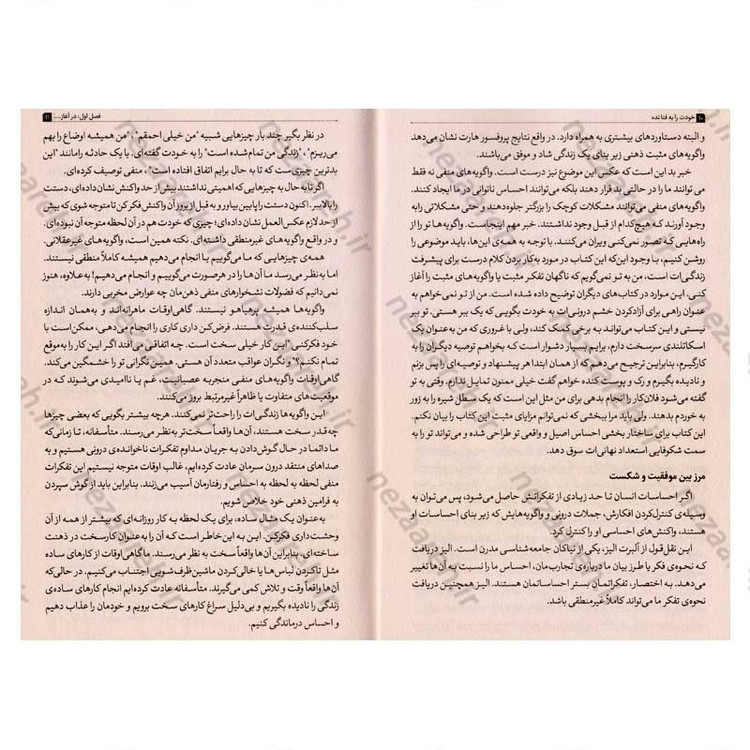 ۱۰ خودت را به فنا نده
و البته دستاوردهای بیشتری به همراه دارد. در واقع نتایج پروفسور هارت نشان می‌دهد
واگویه‌های مثبت ذهنی زیر بنای یک زندگی شاد و موفق می‌باشند.
خبر بد این است که عکس این موضوع نیز درست است. واگویه‌های منفی نه فقط
می‌توانند ما را در حالتی بد قرار دهند بلکه می‌توانند احساس ناتوانی در ما ایجاد کنند.
واگویه‌های منفی می‌توانند مشکلات کوچک را بزرگتر جلوه دهند و حتی مشکلاتی را به
وجود آورند که هیچ‌کدام از قبل وجود نداشتند. خبر مهم اینجاست. واگویه‌ها تو را از
راه‌هایی که تصور نمی‌کنی ویران می‌کنند. با توجه به همه‌ی این‌ها، باید موضوعی را
روشن کنیم، با وجود این‌که این کتاب در مورد به‌کار بردن کلام درست برای پیشرفت
زندگی‌ات است، من به تو نمی‌گویم که ناگهان تفکر مثبت یا واگویه‌های مثبت را آغاز
کنی. این موارد در کتاب‌های دیگران توضیح داده شده است. من از تو نمی‌خواهم به
عنوان راهی برای آزاد کردن خشم درونی‌ات به خودت بگویی که یک ببر هستی. تو ببر
نیستی و این کتاب می‌تواند به برخی کمک کند، ولی با غروری که من به‌عنوان یک
اسکاتلندی سرسخت دارم، برایم بسیار دشوار است که بخواهم توصیه دیگران را به
کارگیرم. بنابراین ترجیح می‌دهم که از همان ابتدا هر پیشنهاد و توصیه‌ای را پس بزنم
و نادیده بگیرم و رک و پوست کنده خواهم گفت خیلی ممنون تمایل ندارم. وقتی به تو
گفته می‌شود فلان‌کار را انجام بدهی برای من مثل این است که یک سطل شیره را به زور
به خوردم بدهند. ولی باید مرا ببخشی که نمی‌توانم مزایای مثبت این کتاب را بیان نکنم.
این کتاب برای ساختار بخشی احساس اصیل و واقعی تو طراحی شده و می‌تواند تو را به
سمت شکوفایی استعداد نهانی‌ات سوق دهد.
مرز بین موفقیت و شکست
اگر احساسات انسان تا حد زیادی از تفکراتش حاصل می‌شود، پس می‌توان به
وسیله‌ی کنترل‌کردن افکارش، جملات درونی و واگویه‌هایش که زیر بنای احساسات او
هستند، واکنش‌های احساسی او را کنترل کرد.
این نقل‌قول از آلبرت الیز، یکی از نیاکان جامعه‌شناسی مدرن است. الیز دریافت
که نحوه‌ی فکر یا طرز بیان ما درباره‌ی تجارب‌مان، احساس ما را نسبت به آن‌ها تغییر
می‌دهد. به اختصار، تفکراتمان بستر احساساتمان هستند. الیز همچنین دریافت
نحوه‌ی تفکر ما می‌تواند کاملاً غیرمنطقی باشد.
فصل اول: در آغاز... ۱۱
در نظر بگیر چند بار چیزهایی شبیه "من خیلی احمقم"، "من همیشه اوضاع را بهم
می‌ریزم"، "زندگی من تمام شده است" را به خودت گفته‌ای. یا یک حادثه را مانند "این
بدترین چیزی‌ست که تا به حال برایم اتفاق افتاده است"، منفی توصیف کرده‌ای.
اگر تا به حال به چیزهایی که اهمیتی نداشتند بیش از حد واکنش نشان داده‌ای، دستت
را بالا ببر. اکنون دستت را پایین بیاور و به قبل از بروز آن واکنش فکر کن تا متوجه شوی که بیش
از حد لازم عکس‌العمل نشان داده‌ای؛ چیزی که خودت هم در آن لحظه متوجه آن نبوده‌ای.
و در واقع واگویه‌های غیرمنطقی داشته‌ای. نکته همین است، واگویه‌های غیرعقلانی.
همه‌ی چیزهایی که ما می‌گوییم یا انجام می‌دهیم همیشه کاملاً منطقی نیستند.
اما به نظر می‌رسد ما آن‌ها را در هرصورت می‌گوییم و انجام می‌دهیم! به‌علاوه، هنوز
نمی‌دانیم که فضولات نشخوارهای منفی ذهن‌مان چه عوارض مخربی دارند.
واگویه‌ها همیشه پرهیاهو نیستند. گاهی‌اوقات ماهرانه‌اند و به‌همان اندازه
سلب‌کننده‌ی قدرت هستند. فرض‌کن داری کاری را انجام می‌دهی، ممکن است با
خود فکر کنی "این کار خیلی سخت است. چه اتفاقی می‌افتد اگر این کار را به‌موقع
تمام نکنم؟" و نگران عواقب متعدد آن هستی. همین نگرانی تو را خشمگین می‌کند.
گاهی‌اوقات واگویه‌های منفی منجر به عصبانیت، غم یا ناامیدی می‌شوند که در
موقعیت‌های متفاوت یا ظاهراً غیرمرتبط بروز می‌کنند.
این واگویه‌ها زندگی‌ات را راحت‌تر نمی‌کنند. هرچه بیشتر بگویی که بعضی چیزها
چه‌قدر سخت هستند، آن‌ها واقعاً سخت‌تر به‌نظر می‌رسند. متأسفانه، تا زمانی‌که
ما دائما در حال گوش‌دادن به جریان مداوم تفکرات ناخوانده‌ی درونی هستیم و به
صداهای منتقد درون سرمان عادت کرده‌ایم، غالب اوقات متوجه نیستیم این تفکرات
منفی لحظه به لحظه به احساس و رفتارمان آسیب می‌زنند. بنابراین باید از گوش سپردن
به فرامین ذهنی خود خلاص شویم.
به‌عنوان یک مثال ساده، برای یک لحظه به کار روزانه‌ای که بیشتر از همه از آن
وحشت داری فکر کن. این به این خاطر است که آن را به‌عنوان کار سخت در ذهنت
ساخته‌ای، بنابراین آن‌ها واقعاً سخت به نظر می‌رسند. ما گاهی اوقات از کارهای ساده
مثل تا کردن لباس‌ها یا خالی‌کردن ماشین ظرف‌شویی اجتناب می‌کنیم. در حالی‌که
آن‌ها واقعاً وقت و تلاش کمی می‌گیرند. متأسفانه عادت کرده‌ایم انجام کارهای ساده‌ی
زندگی را نادیده بگیریم و بی‌دلیل سراغ کارهای سخت برویم و خودمان را عذاب دهیم
و احساس درماندگی کنیم.
nezaareh.ir